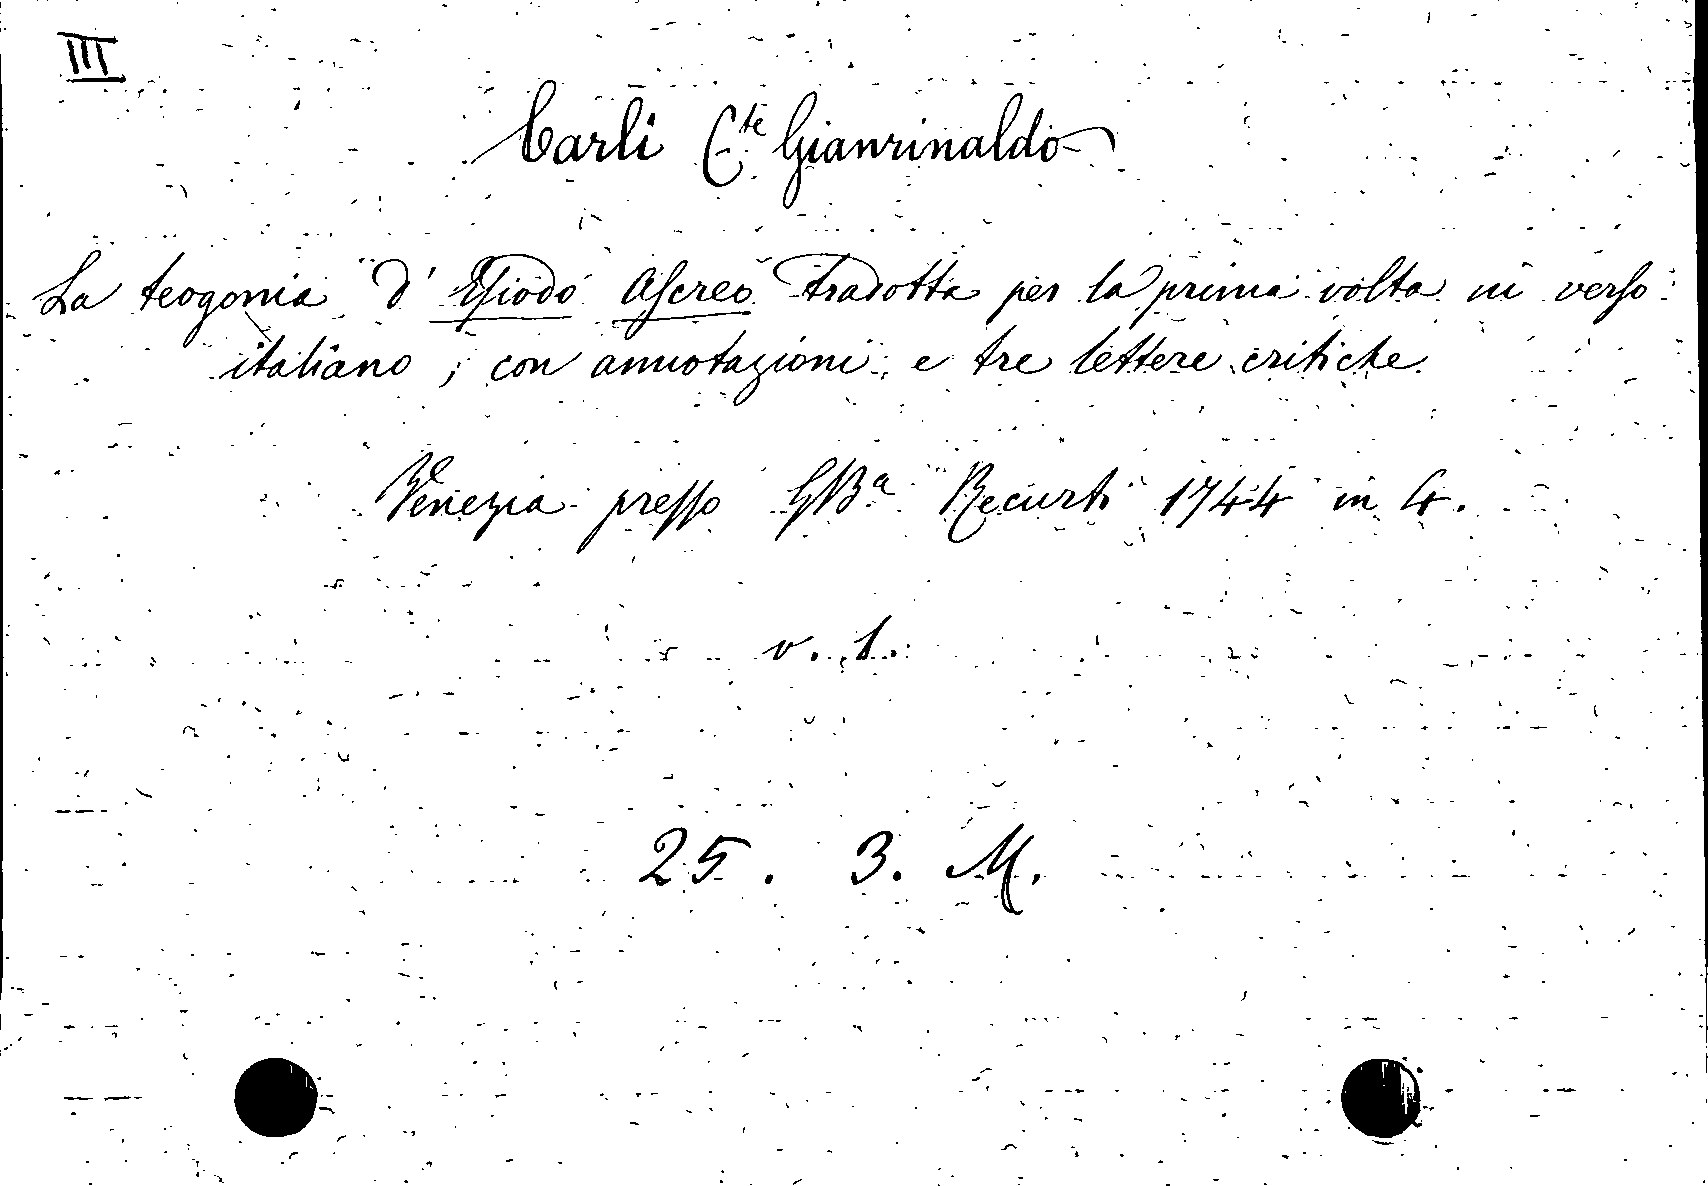 III
Carli C.te Gianrinaldo
La teogonia d' Esiodo Ascreo tradotta per la prima volta in verso
italiano, con annotazioni, e tre lettere critiche
Venezia presso GBa Recurti 1744 in 4.
v. 1.
25. 3. M.